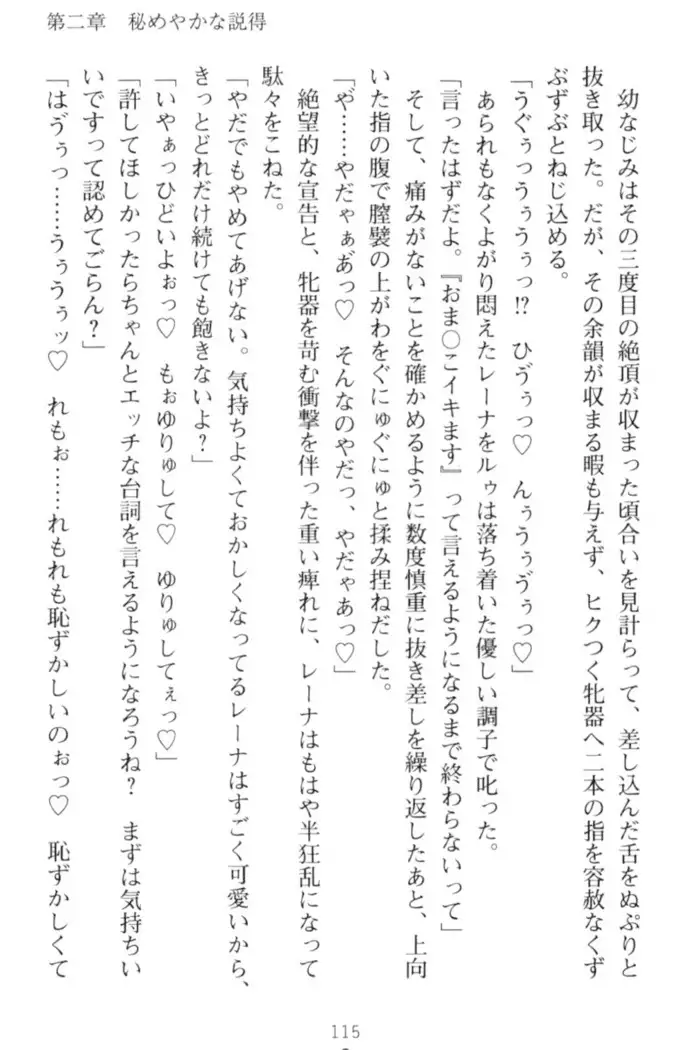 第二章　秘めやかな説得
　幼なじみはその三度目の絶頂が収まった頃合いを見計らって、差し込んだ舌をぬぷりと
抜き取った。だが、その余韻が収まる暇も与えず、ヒクつく牝器へ二本の指を容赦なくず
ぶずぶとねじ込める。
「うぐぅっうぅうぅっ!?　ひゔぅっ♡　んぅうぅゔぅっ♡」
　あられもなくよがり悶えたレーナをルゥは落ち着いた優しい調子で叱った。
「言ったはずだよ。『おま○こイキます』って言えるようになるまで終わらないって」
　そして、痛みがないことを確かめるように数度慎重に抜き差しを繰り返したあと、上向
いた指の腹で膣襞の上がわをぐにゅぐにゅと揉み捏ねだした。
「や゙……やだゃぁあ゙っ♡　そんなのやだっ、やだゃあっ♡」
　絶望的な宣告と、牝器を苛む衝撃を伴った重い痺れに、レーナはもはや半狂乱になって
駄々をこねた。
「やだでもやめてあげない。気持ちよくておかしくなってるレーナはすごく可愛いから、
きっとどれだけ続けても飽きないよ？」
「いやぁっひどいよぉっ♡　もぉゆりゅして♡　ゆりゅしてぇっ♡」
「許してほしかったらちゃんとエッチな台詞を言えるようになろうね？　まずは気持ちい
いですって認めてごらん？」
「はゔぅっ……うぅうぅッ♡　れもぉ……れもれも恥ずかしいのぉっ♡　恥ずかしくて
115